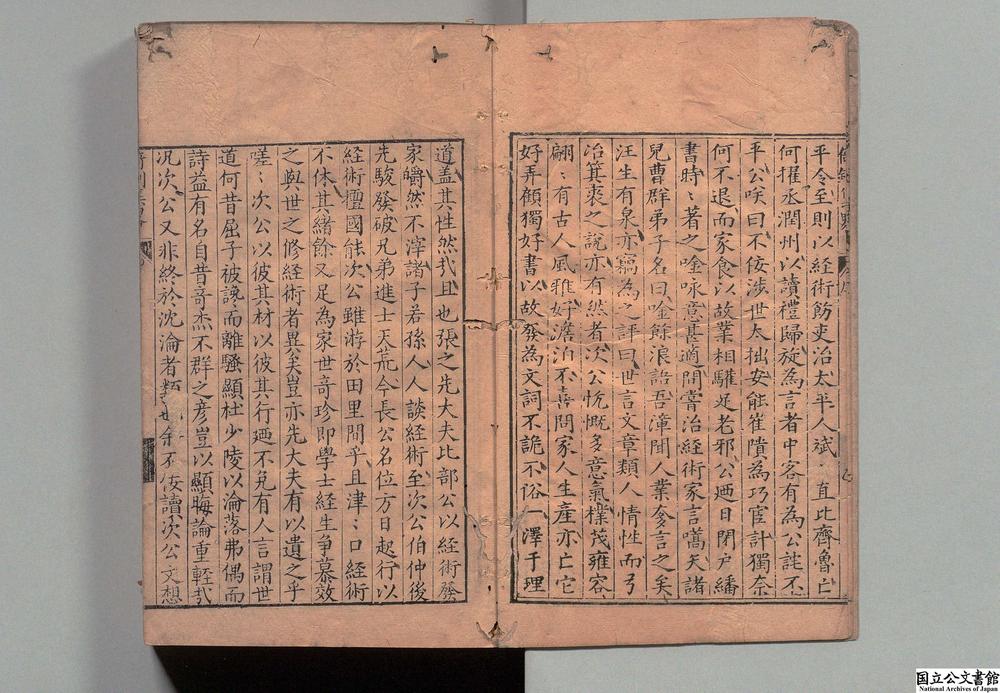 平令至則以経術飭吏治太平人斌直比齊魯亡
何擢丞潤州以讀禮歸旋為言者中客有為公詫不
平公咲曰不佞渉世太拙安能崔隤為巧宦計獨奈
何不退而家食以故業相驩足老邪公廼日閉戸繙
書時〻著之唫咏意甚適間甞治経術家言嚆矢諸
兒曹群弟子名曰唫餘浪語吾漳聞人業參言之矣
汪生有泉亦竊為之評曰世言文章類人情性而弓
冶箕裘之說亦有然者次公忼慨多意氣樸茂雍容
翩〻有古人風雅好澹泊不喜問家人生產亦亡它
好弄顧獨好書以故發為文詞不詭不俗一澤于理
道盖其性然㦲且也張之先大夫比部公以経術發
家皭然不滓諸子若孫人人談経術至次公伯仲後
先駿發破兄弟進士天荒今長公名位方日起行以
経術禮國能次公雖游於田里間乎且津〻口経術
不休其緒餘又足為家世竒珍即學士経生争慕效
之與世之修経術者異矣豈亦先大夫有以遺之乎
嗟〻次公以彼其材以彼其行廼不免有人言謂世
道何昔屈子被讒而離騷顯杜少陵以淪落弗偶而
詩益有名自昔竒杰不群之彦豈以顯晦論重輊㦲
况次公又非終於沈淪者類也余不佞讀次公文想
国立公文書館
National Archives of Japan